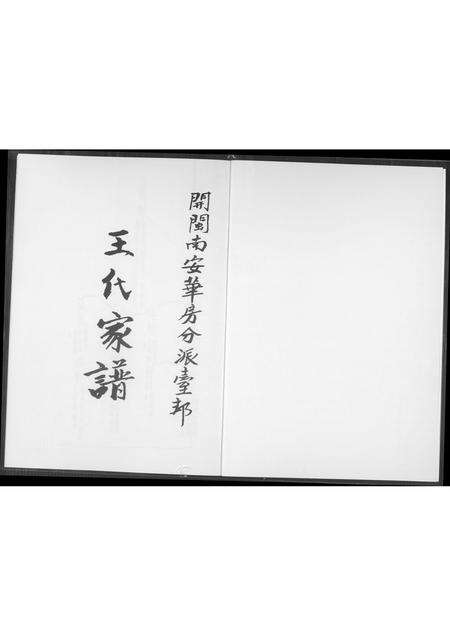 開閩南安華房分派臺邦
王代家譜